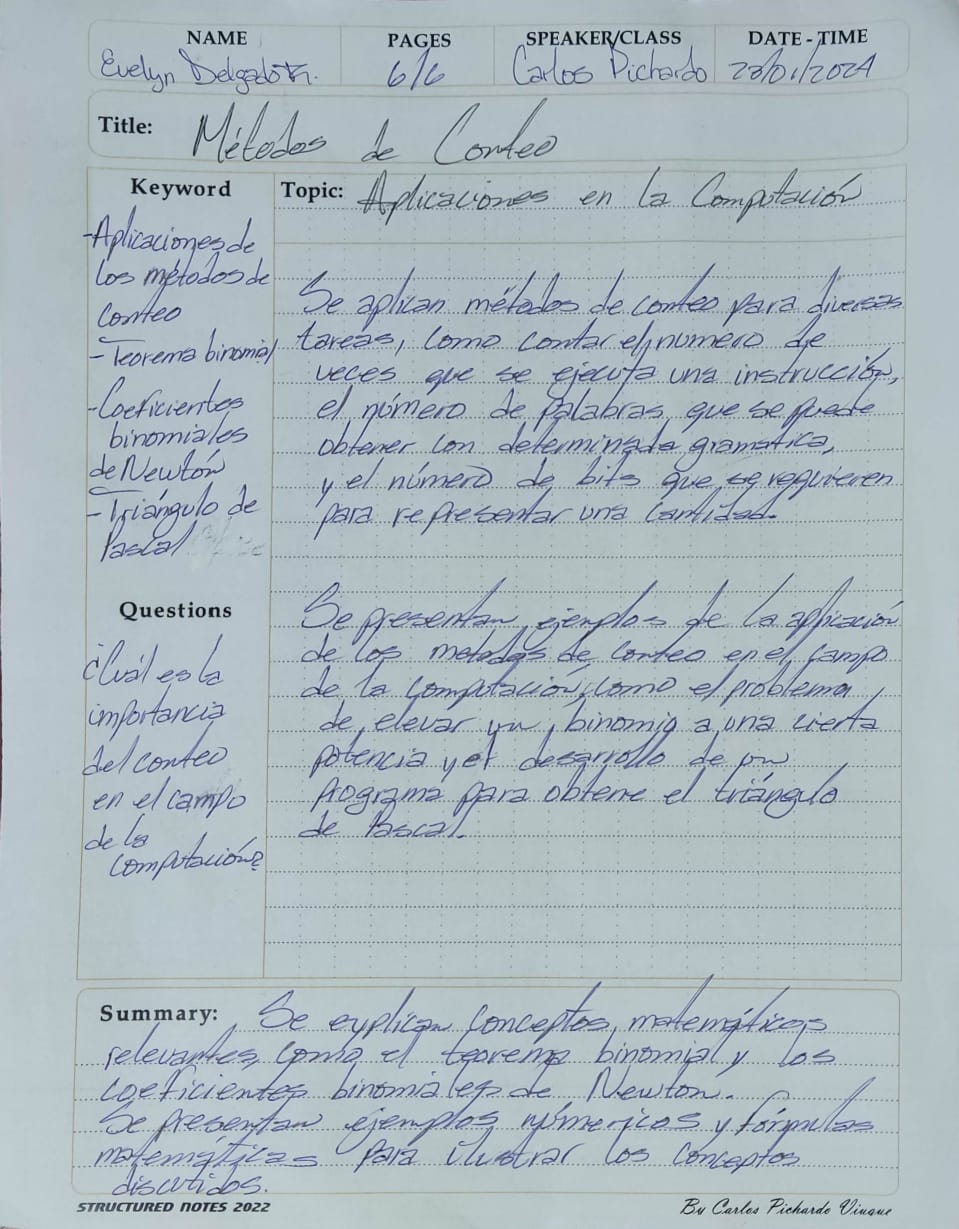 NAME PAGES SPEAKER/CLASS DATE - TIME
Evelyn Delgado 6/6 Carlos Pichardo /01/2024
Title: Métodos de Conteo
Keyword
-Aplicaciones de
los métodos de
conteo
- Teorema binomial
-Coeficientes
binomiales
de Newton
- Triángulo de
Pascal
Questions
¿Cuál es la
importancia
del conteo
en el campo
de la
computación?
Topic: Aplicaciones en la Computación
Se aplican métodos de conteo para diversas
tareas, como contar el número de
veces que se ejecuta una instrucción,
el número de palabras que se puede
obtener con determinada gramática,
y el número de bits que se requieren
para representar una cantidad.
Se presentan ejemplos de la aplicación
de los metodos de conteo en el campo
de la computación, como el problema
de elevar un binomio a una cierta
potencia y el desarrollo de un
Programa para obtener el triángulo
de Pascal.
Summary: Se explican conceptos matemáticos
relevantes, como el teorema binomial y los
coeficientes binomiales de Newton.
Se presentan ejemplos númericos y fórmulas
matemáticas para ilustrar los conceptos
discutidos.
STRUCTURED NOTES 2022 By Carlos Pichardo Viuque